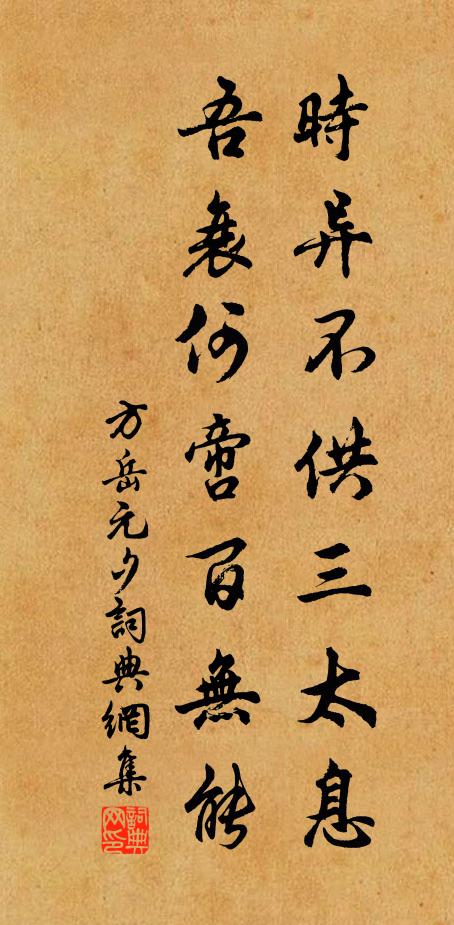 時异不供三太息
吾衰何啻百無能
方岳元夕詞典網集
詞典网印